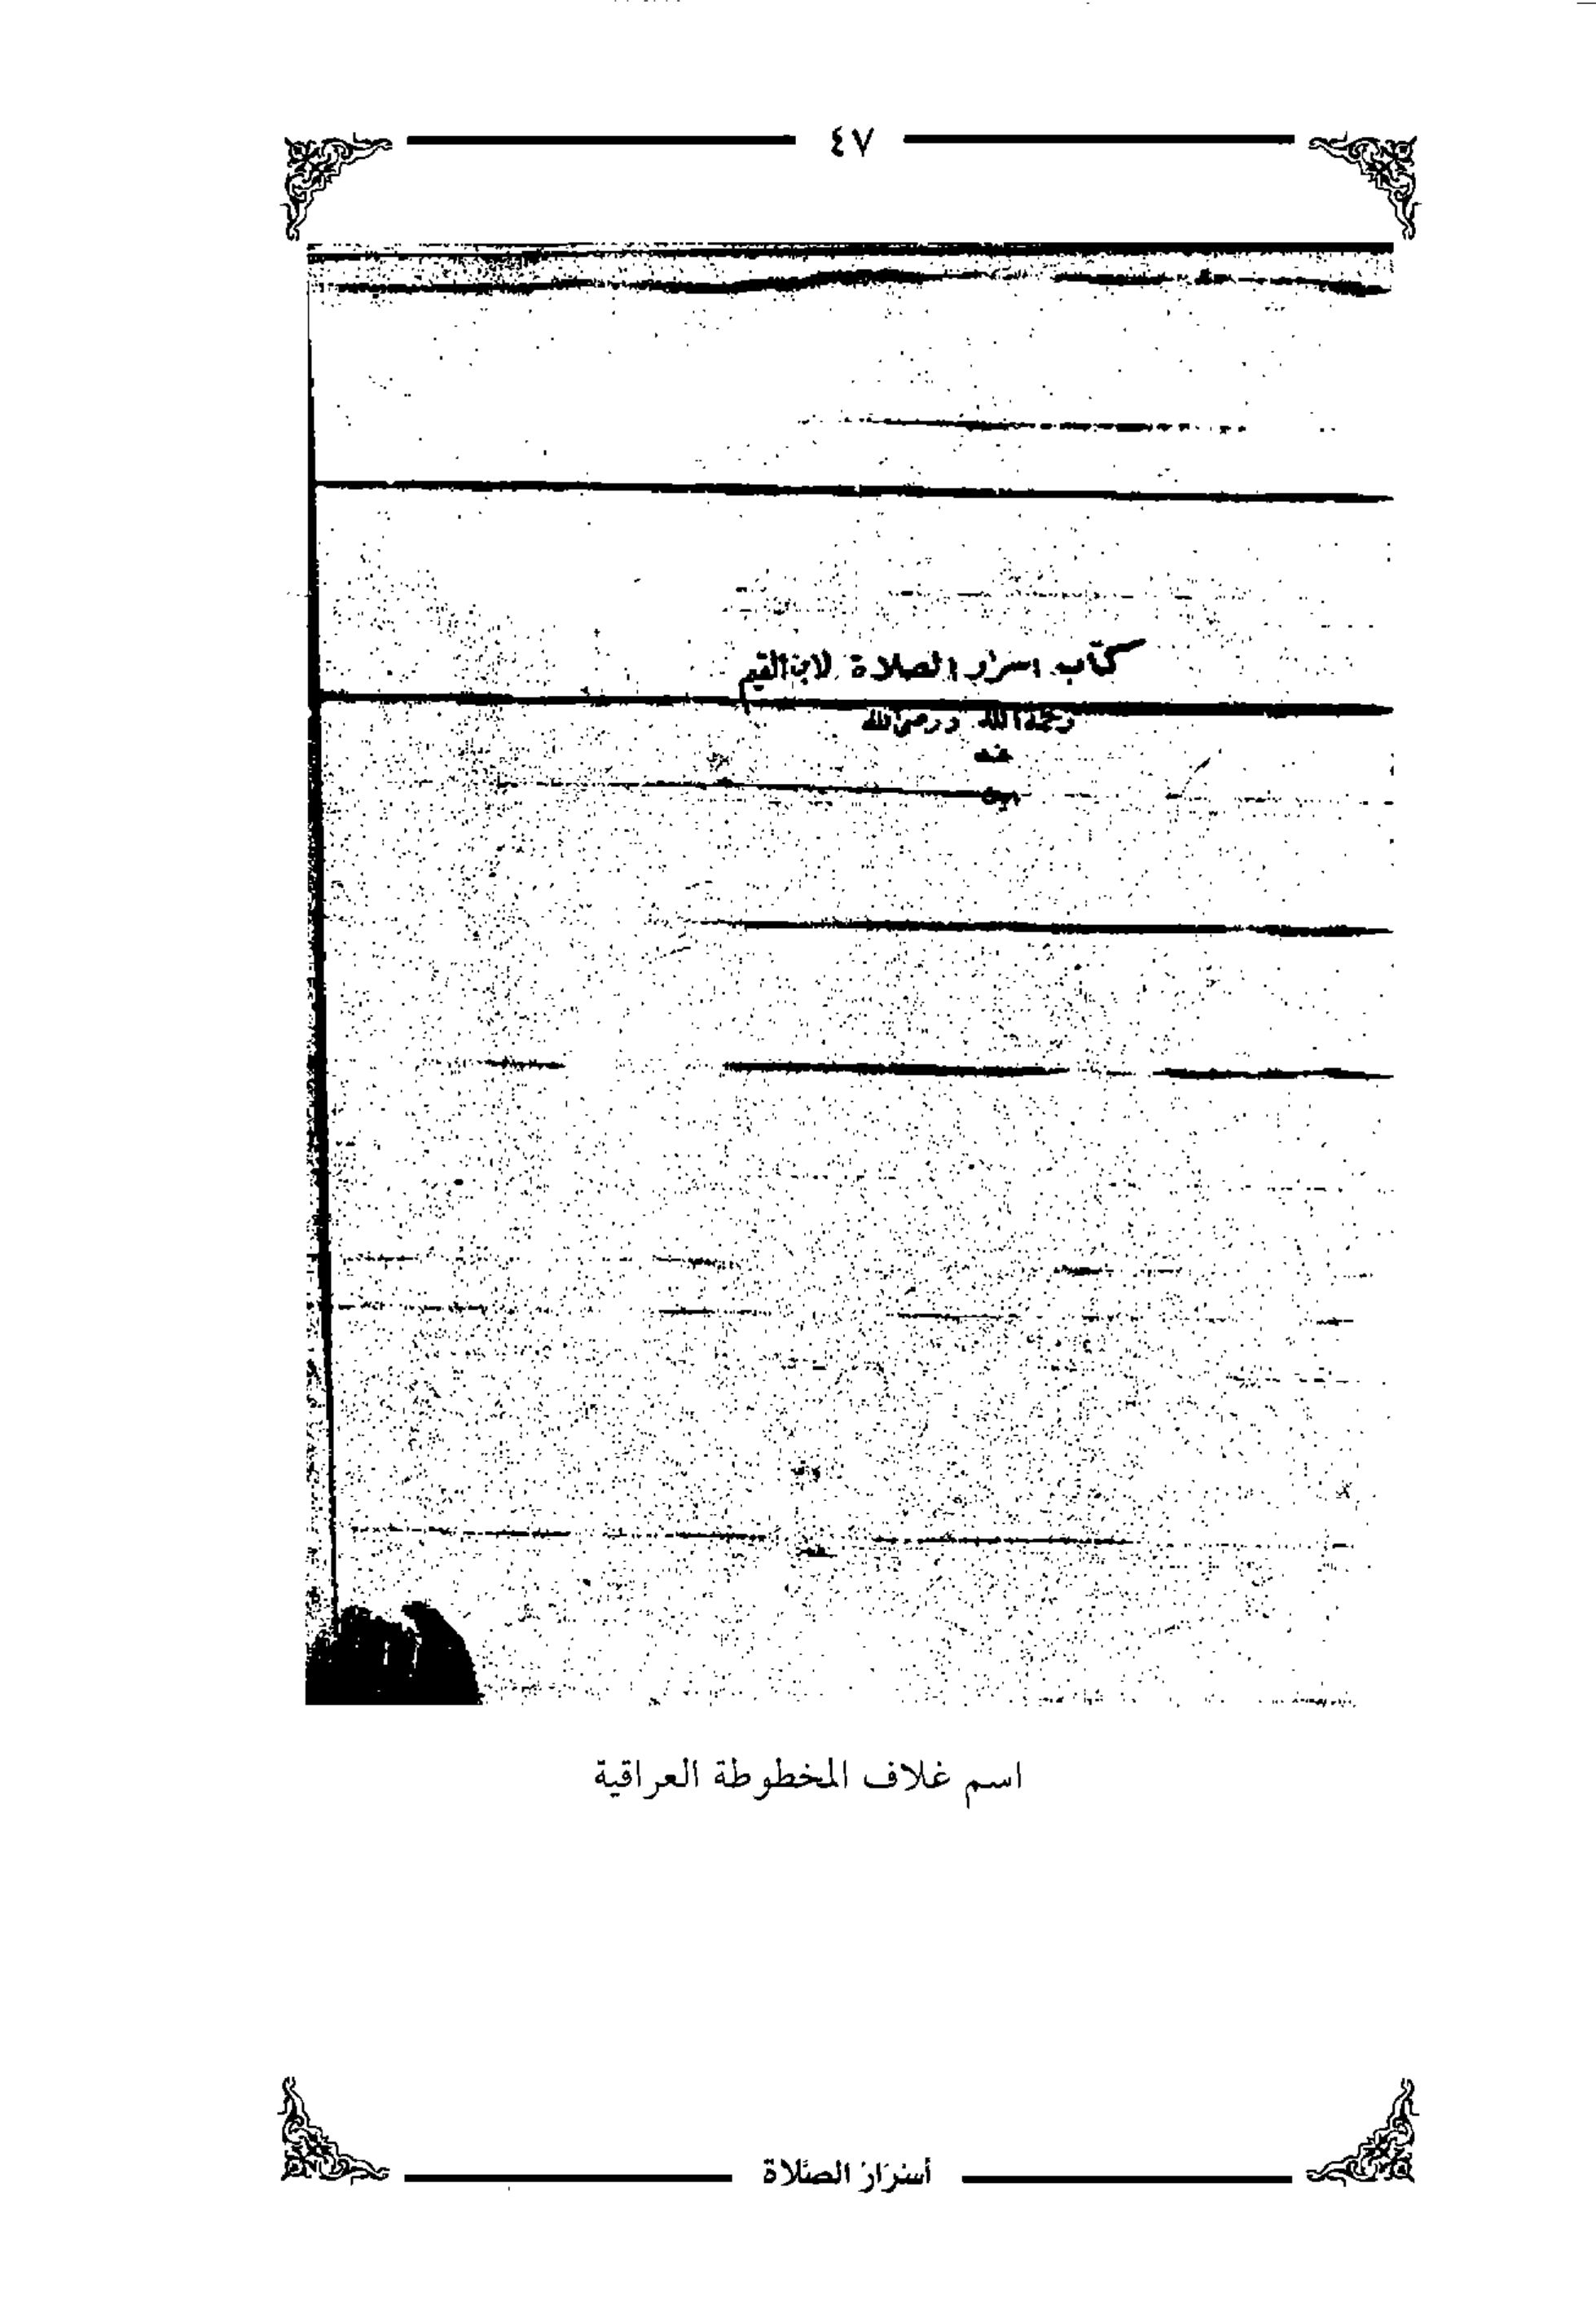 ٤٧
كتاب اسرار الصلاة لابن القيم
رحمه الله ورضي الله
عنه
امين
اسم غلاف المخطوطة العراقية
أسرار الصلاة